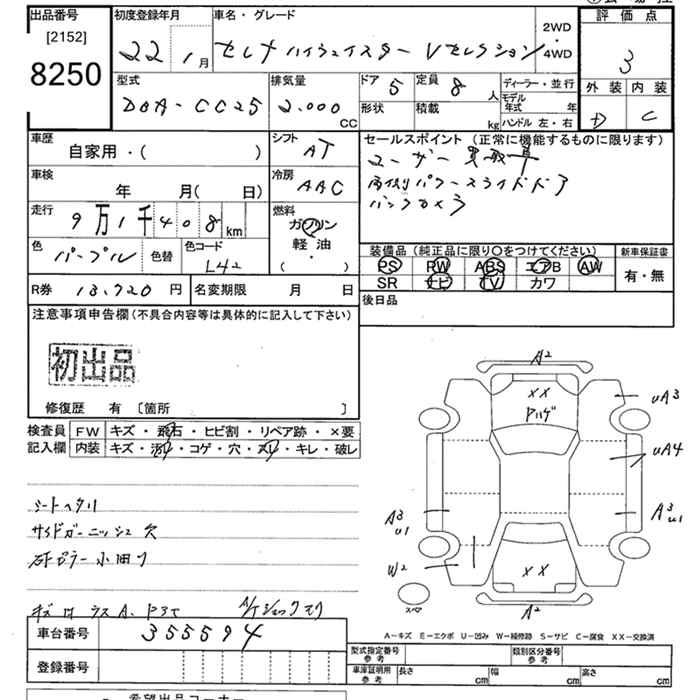 出品番号
[2152]
8250
初度登録年月
22 1月
車名・グレード
セレナ ハイウェイスター Vセレクション
2WD
・
4WD
評価点
3
外装 内装
D C
型式
DBA-CC25
排気量
2.000
CC
ドア 5
定員 8 人
形状
積載 kg
ディーラー・並行
モデル年式 年
ハンドル 左・右
車歴
自家用・( )
シフト
AT
車検
年 月( 日)
冷房
AAC
走行
9万1千408km
燃料
ガソリン
軽油
( ・ )
色
パープル
色替
色コード
L42
R券 13.720円
名変期限 月 日
セールスポイント(正常に機能するものに限ります)
ユーザー買取車
両側パワースライドドア
バックカメラ
装備品(純正品に限り○をつけてください)
PS PW ABS エアB AW
SR ナビ TV カワ
新車保証書
有・無
後日品
注意事項申告欄(不具合内容等は具体的に記入して下さい)
初出品
修復歴 有 [箇所 ]
検査員記入欄
FW キズ・飛石・ヒビ割・リペア跡・×要
内装 キズ・汚れ・コゲ・穴・スレ・キレ・破レ
シートヘタリ
サイドガーニッシュ欠
A2
××
ハゲ
uA3
uA4
A3
u1
A3
u1
W2
××
A2
スペア
A-キズ E-エクボ U-凹み W-補修跡 S-サビ C-腐食 XX-交換済
車台番号 355594
登録番号
型式指定番号
参考
類別区分番号
参考
車庫証明用
参考
長さ cm 幅 cm 高さ cm
希望出品コーナー